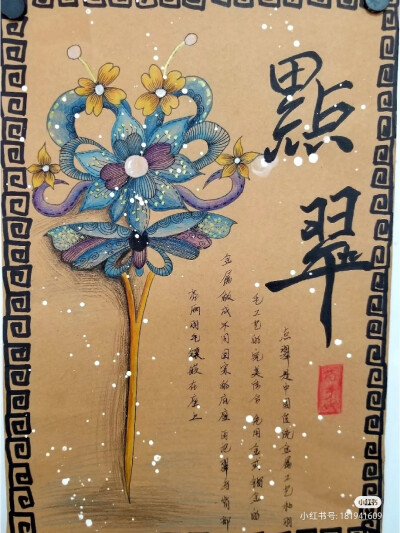 點翠
点翠是中国传统金属工艺和羽
毛工艺的完美结合 先用金或镏金的
金属做成不同图案的底座 再把翠鸟背部
亮丽的羽毛镶嵌在座上
小红书
小红书号: 181941609